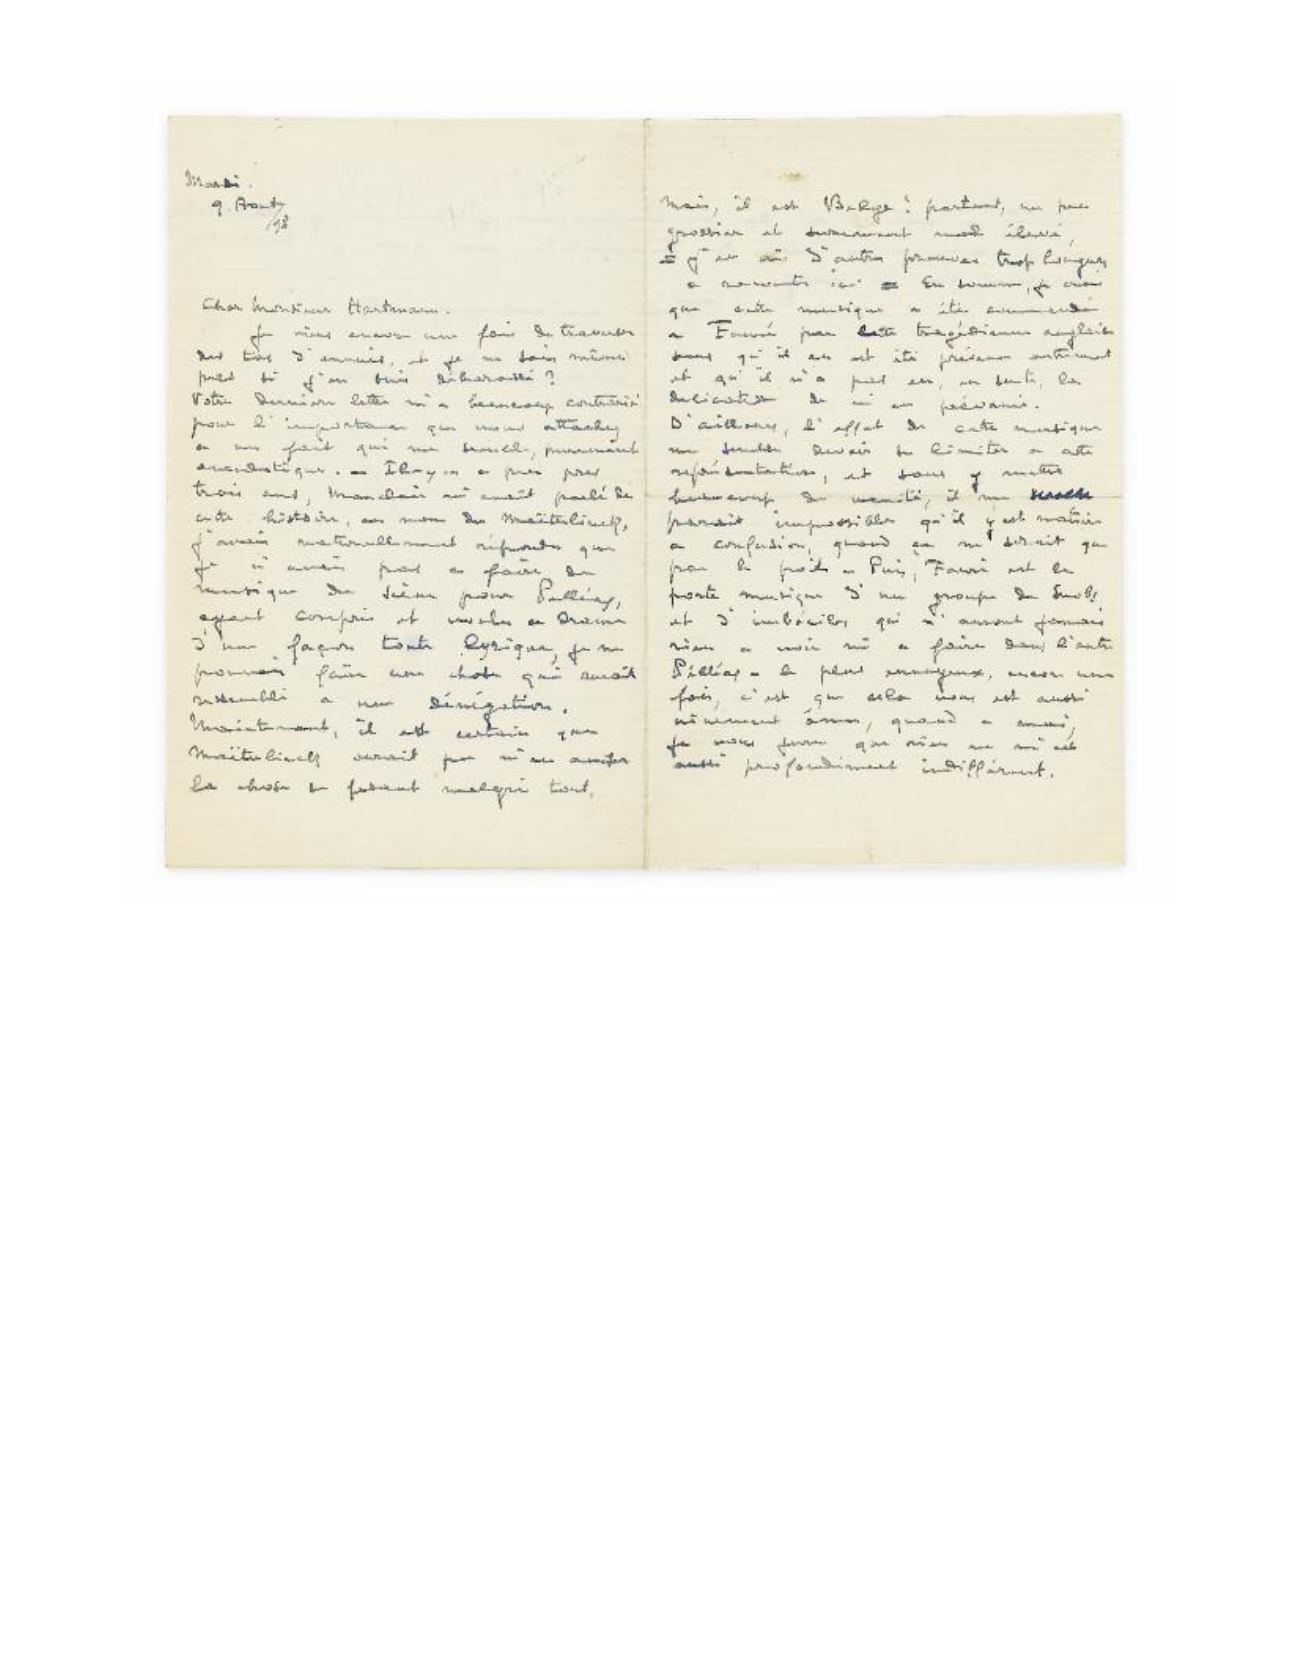 Mardi.
9. Aout/
/98
Cher Monsieur Hartmann.
Je viens encore une fois de traverser
des tas d'ennuis, et je ne sais même
pas si j'en suis débarassé?
Votre dernière lettre m'a beaucoup contrarié
pour l'importance que vous attachez
a un fait qui me semble, purement
anecdotique. — Il y a a peu près
trois ans, Mauclair m'avait parlé de
cette histoire, au nom de Maëterlinck,
j'avais naturellement répondu que
je n'avais pas a faire de
musique de scène pour Pelléas,
ayant compris et voulu ce drame
d'une façon toute lyrique, je ne
pouvais faire une chose qui aurait
ressemblé a une dénégation.
Maintenant, il est certain que
Maëterlinck aurait pu m'en aviser
la chose se faisant malgré tout.
Mais, il est Belge! partant, un peu
grossier et surement mal élevé,
= j'en ais d'autres preuves trop longues
a raconter ici = En somme, je crois
que cette musique a été commandée
a Fauré par cette tragédienne anglaise
sans qu'il en est été prévenu autrement
et qu'il n'a pas eu, en suite, la
délicatesse de m'en prévenir.
D'ailleurs, l'effet de cette musique
me semble devoir se limiter a cette
représentation, et sans y mettre
beaucoup de vanité, il me
parait impossible qu'il y est matière
a confusion, quand ça ne serait que
par le poids — Puis, Fauré est le
porte musique d'un groupe de Snobs
et d'imbéciles qui n'auront jamais
rien a voir ni a faire dans l'autre
Pelléas — le plus ennuyeux, encore une
fois, c'est que cela vous est aussi
vivement ému, quand a moi,
je vous jure que rien ne m'est
aussi profondément indifférent.